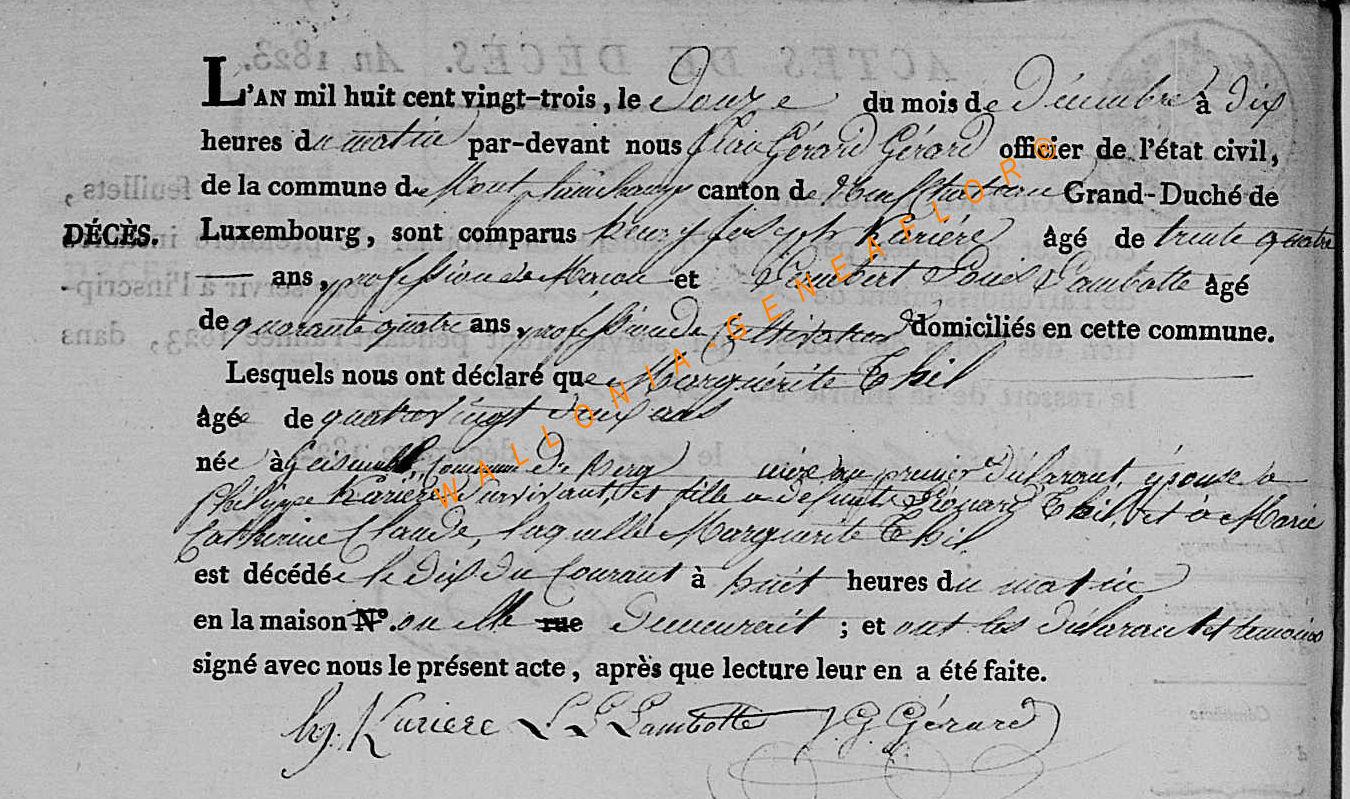 L'AN mil huit cent vingt-trois, le Douze du mois de Décembre à dix
heures du matin par-devant nous Jean Gérard Gérard officier de l'état civil,
de la commune de canton de Neufchateau Grand-Duché de
DÉCÈS. Luxembourg, sont comparus henry joseph Karière âgé de trente quatre
ans, profession de Maçon et Lambert Louis Lambotte âgé
de quarante quatre ans, profession de Cultivateur domiciliés en cette commune.
Lesquels nous ont déclaré que Marguérite Thil
âgée de quatre vingt deux ans
née à commune de mère au premier déclarant, épouse a
philippe Karière Survivant, et fille a defunts Thil, et à Marie
Catherine Claude, laquelle Marguerite Thil
est décédée le dix du Courant à huit heures du matin
en la maison N°. ou elle rue Demeurait ; et ont les déclarant et temoins
signé avec nous le présent acte, après que lecture leur en a été faite.
hj. Kariere L L Lambotte J. G. Gérard
WALLONIA-GENEAFLOR©